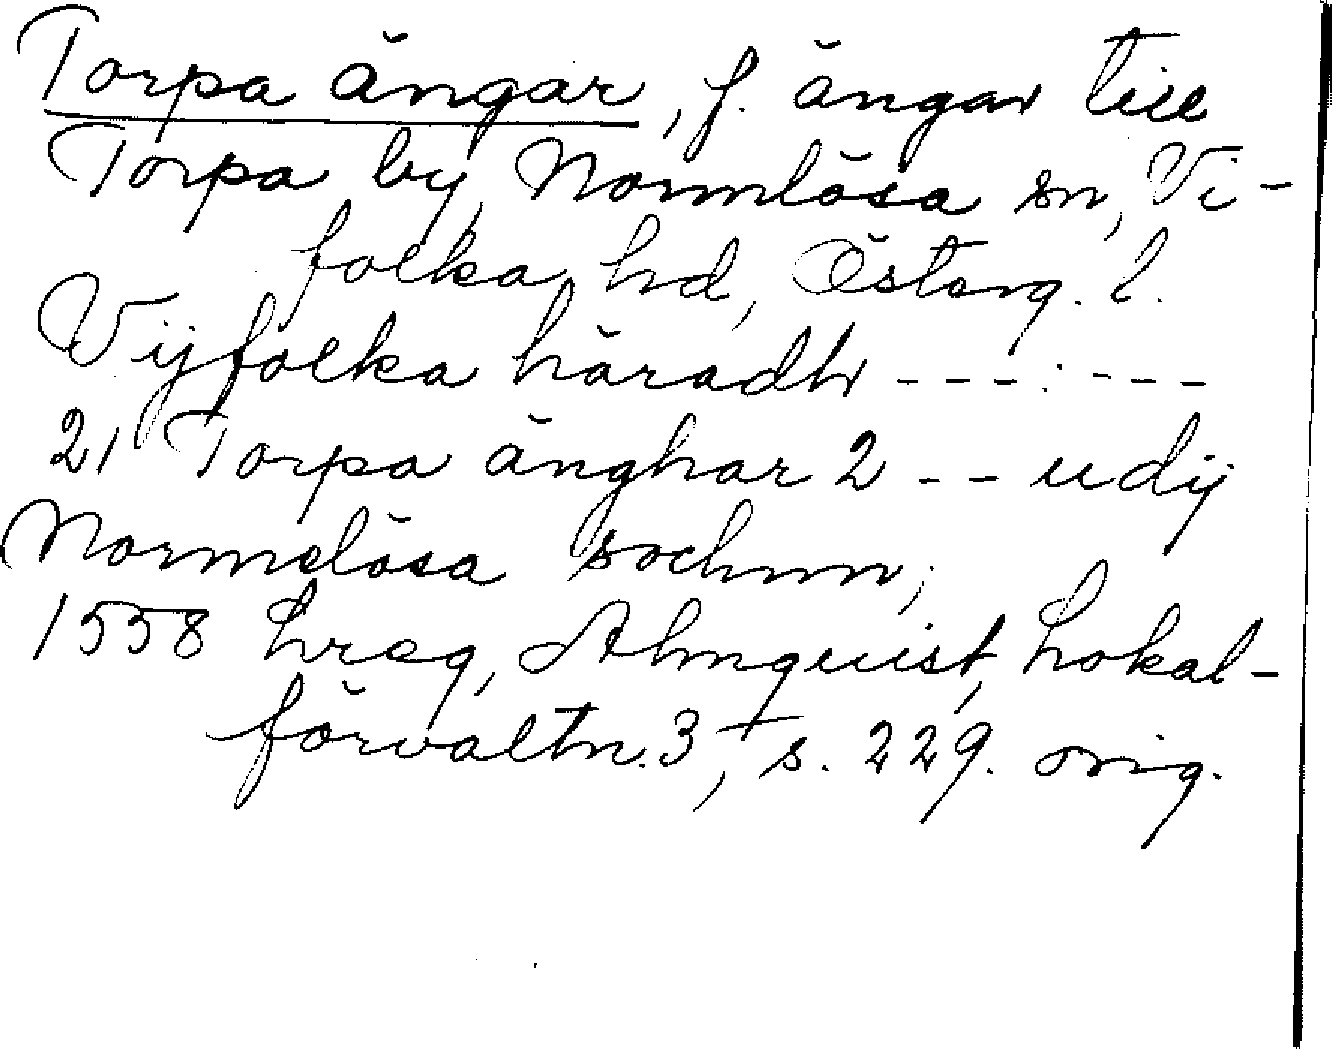 Torpa ängar, f. ängar till
Torpa by, Normlösa sn, Vi-
folka hd, Österg. l.
Vijfolka häradh - - - . - - -
21 Torpa änghar 2 - - udij
Normelösa sochnn;
1558 hreg, Almquist, Lokal-
förvaltn. 3, s. 229. orig.